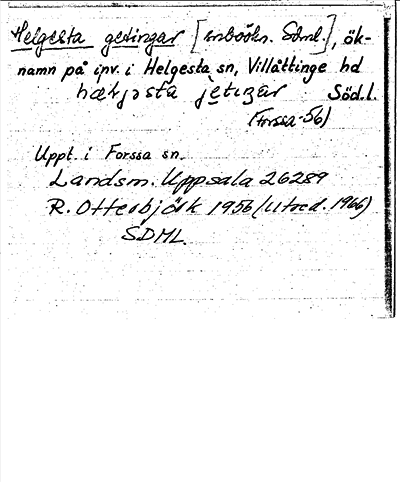 Helgesta getingar [inbökn. Sdml.], ök-
namn på inv. i Helgesta sn, Villåttinge hd
Söd.l.
(Forssa-56)
Uppt. i Forssa sn.
Landsm. Uppsala 26289
R. Otterbjörk 1956 (Utred. 1966)
SDML.